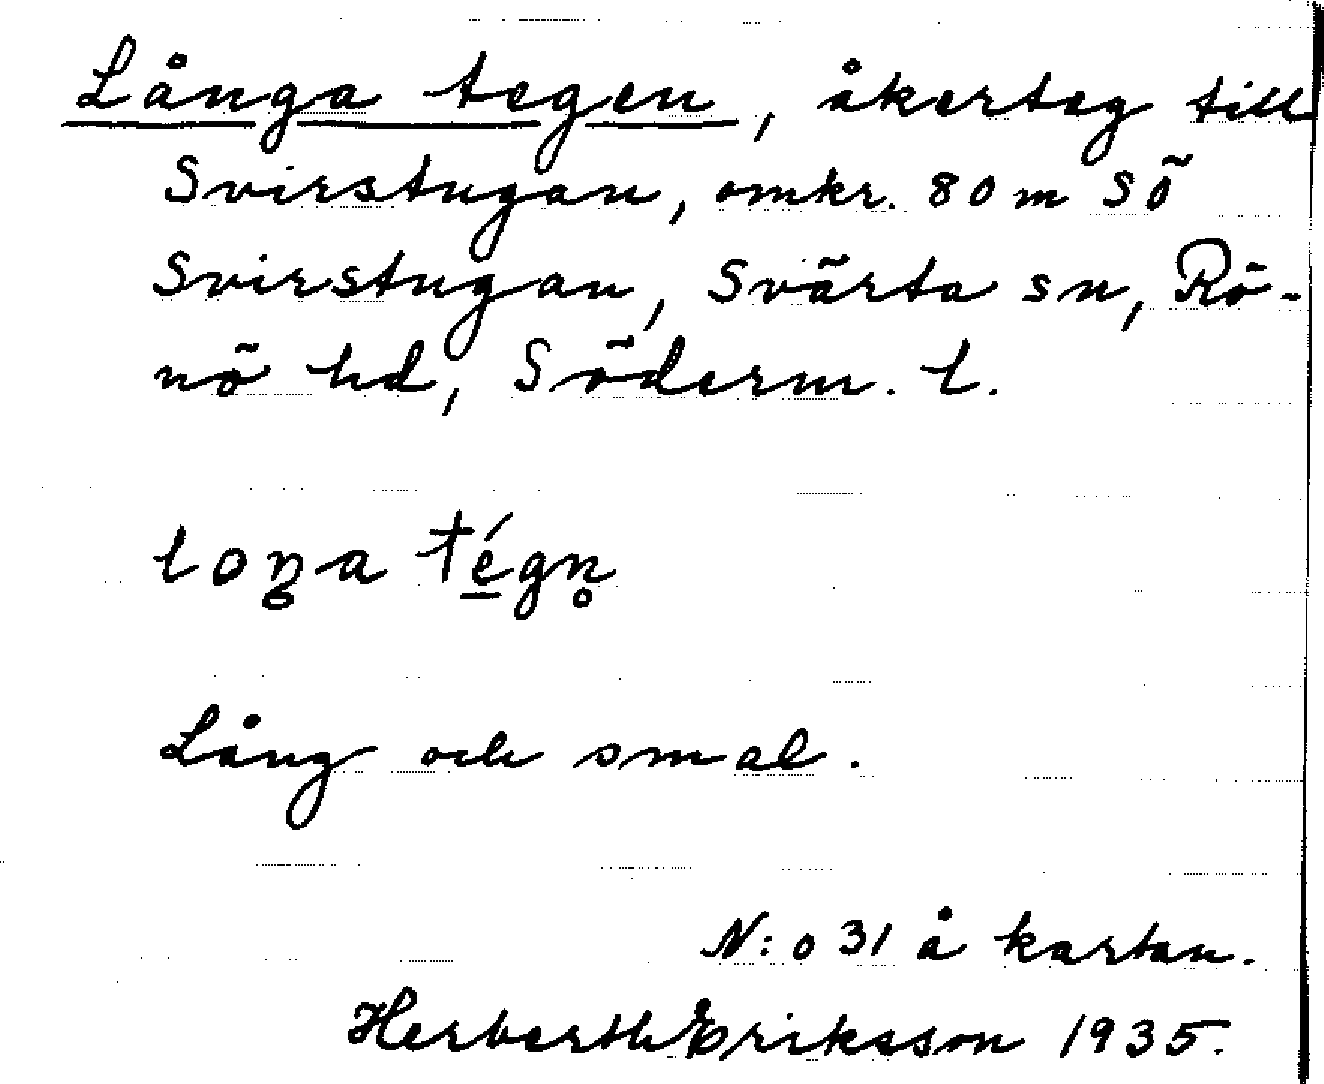 Långa tegen, åkerteg till
Svirstugan, omkr. 80 m SÖ
Svirstugan, Svärta sn, Rö-
nö hd, Söderm. l.
loŋa tégn̥
Lång och smal.
N:o 31 å kartan.
Herberth Eriksson 1935.